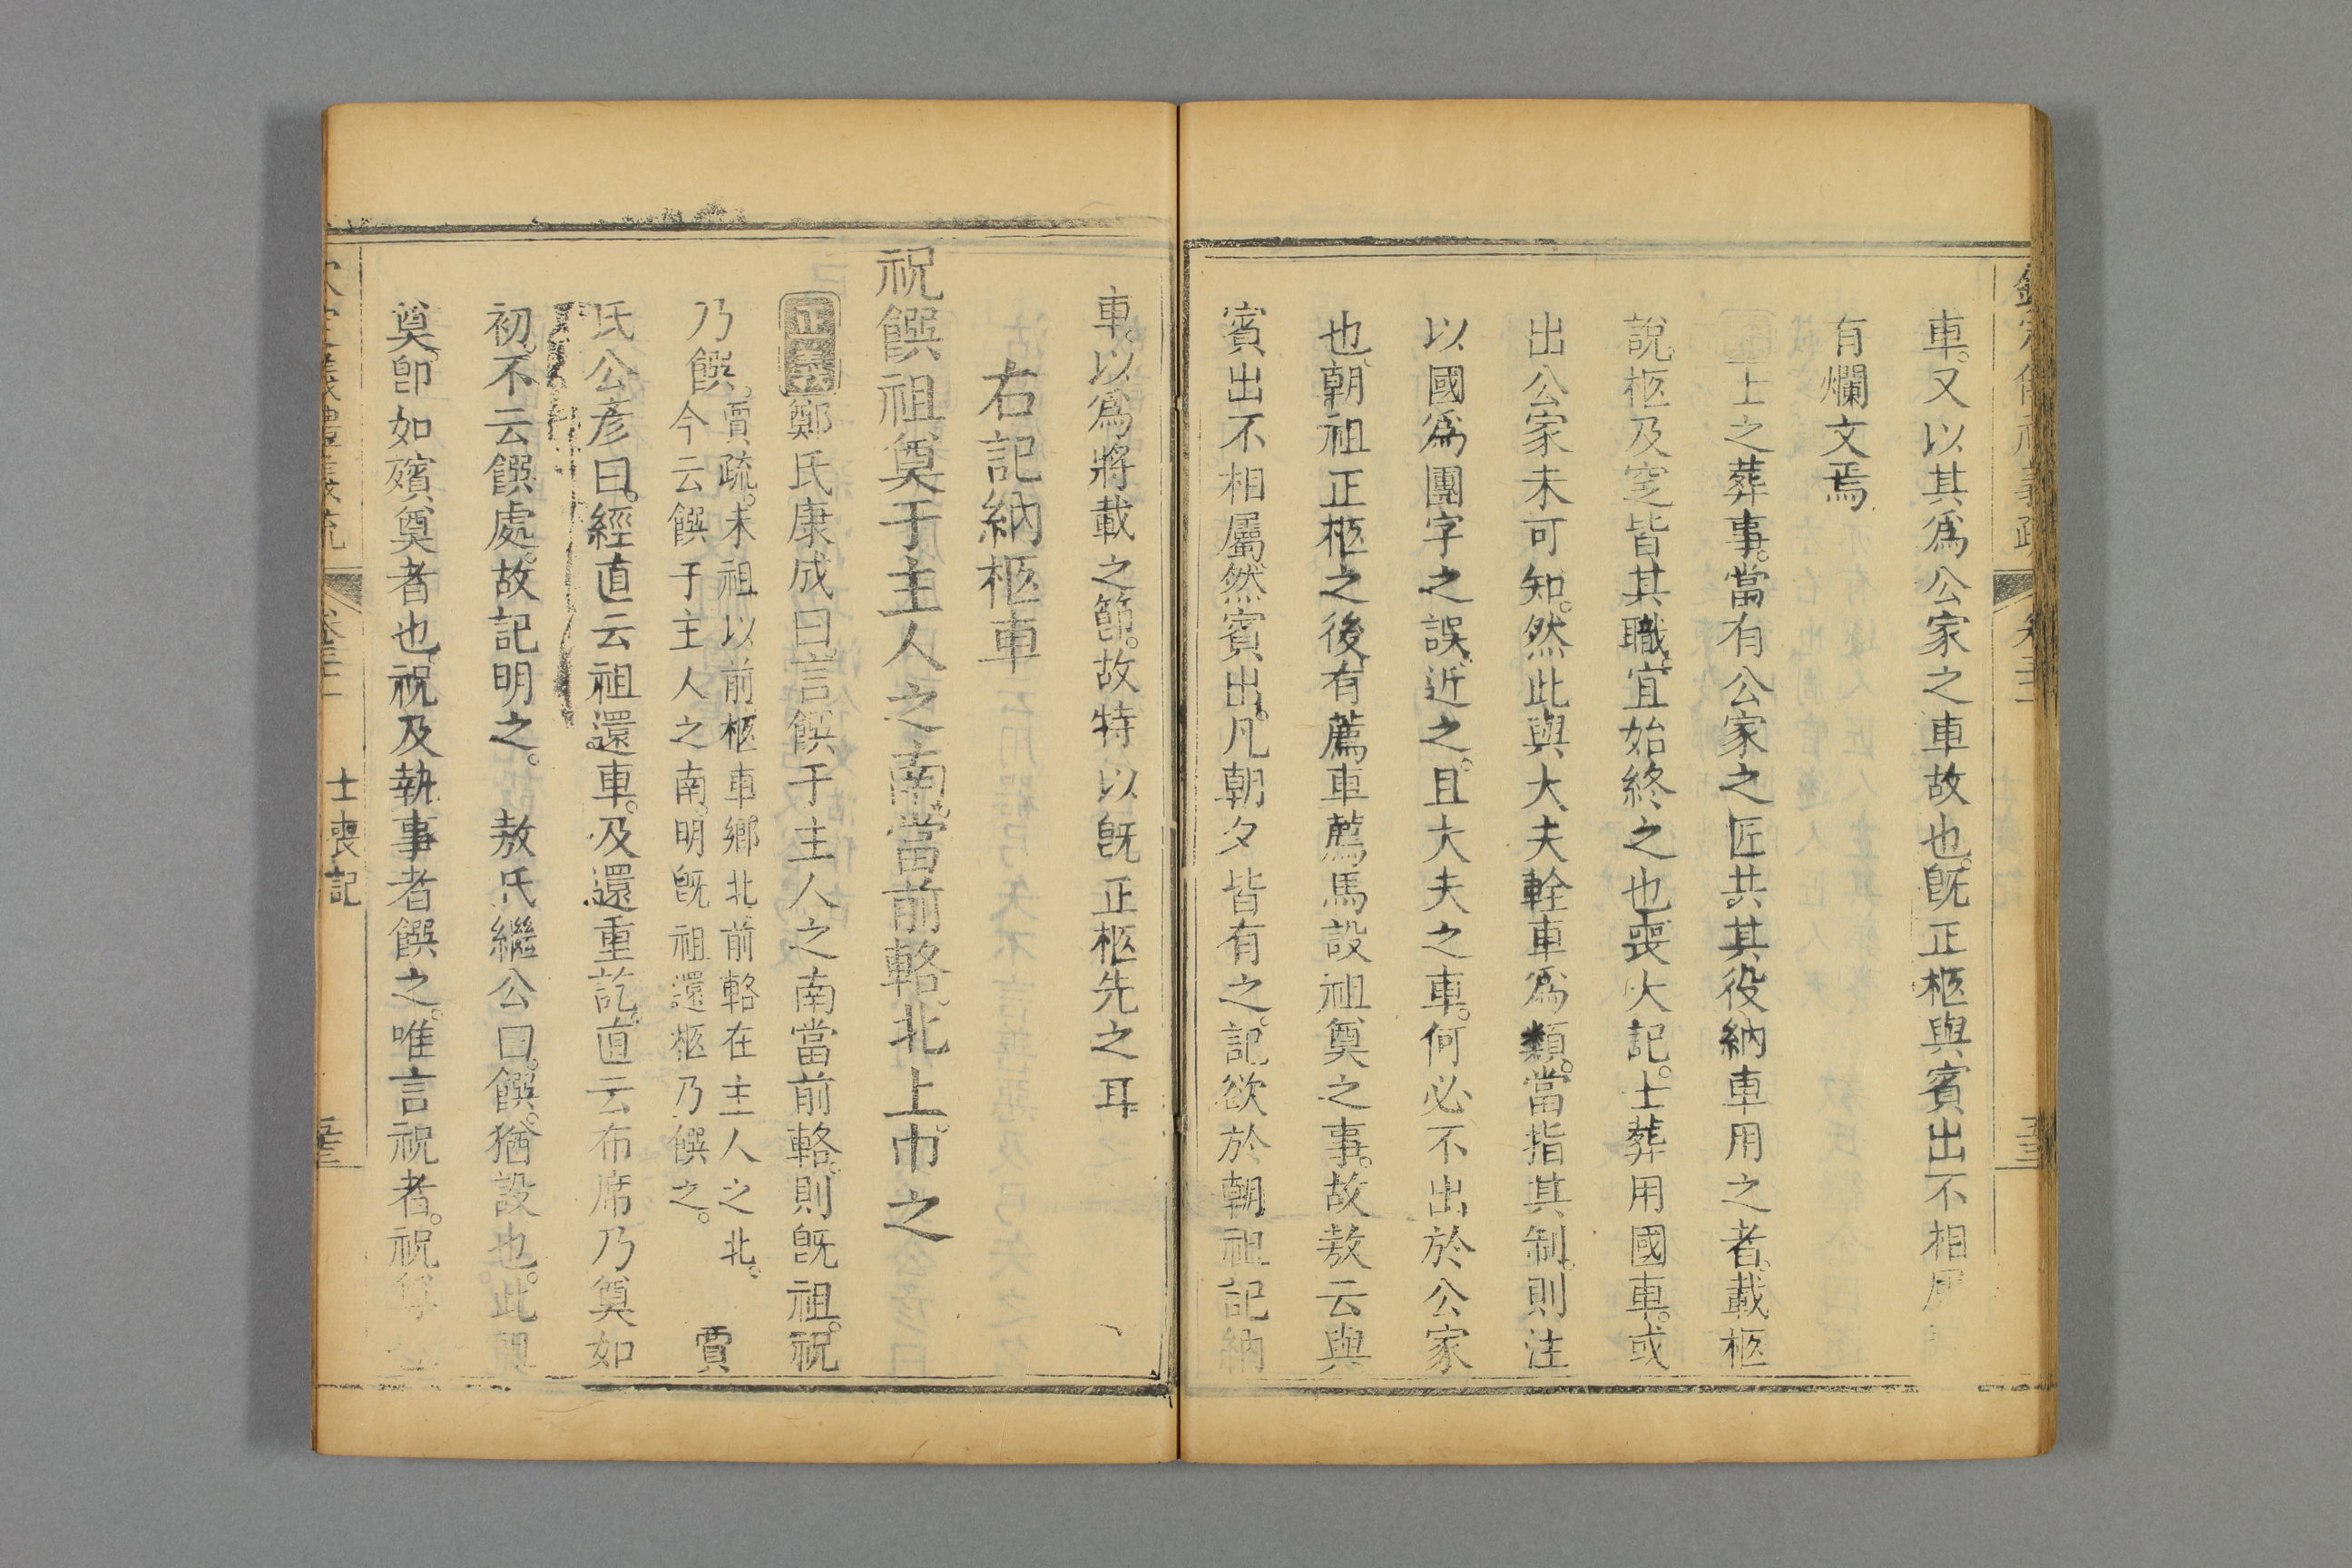 車。又以其爲公家之車故也。旣正柩與賓出不相
有爛文焉
上之葬事。當有公家之匠共其役納車用之者。載柩
說柩及窆皆其職。宜始終之也喪大記。士葬用國車。或
出公家未可知。然此與大夫輇車爲類。當指其制。則注
以國爲團字之誤。近之。且大夫之車。何必不出於公家
也。朝祖正柩之後。有薦車薦馬設祖奠之事。故敖云與
賓出不相屬。然賓出。凡朝夕皆有之。記欲於朝祖記納
車。以爲將載之節。故特以旣正柩先之耳
右記納柩車
祝饌祖奠于主人之南。當前輅。北上。巾之
鄭氏康成曰。言饌于主人之南當前輅。則旣祖。祝
乃饌。賈疏。未祖以前柩車鄉北前輅在主人之北。
今云饌于主人之南。明旣祖還柩乃饌之。 賈
氏公彦曰。經直云祖還車。及還重訖。直云布席乃奠如
初。不云饌處。故記明之。 敖氏繼公曰。饌。猶設也。此
奠。卽如殯奠者也。祝及執事者饌之。唯言祝者。祝
士喪記